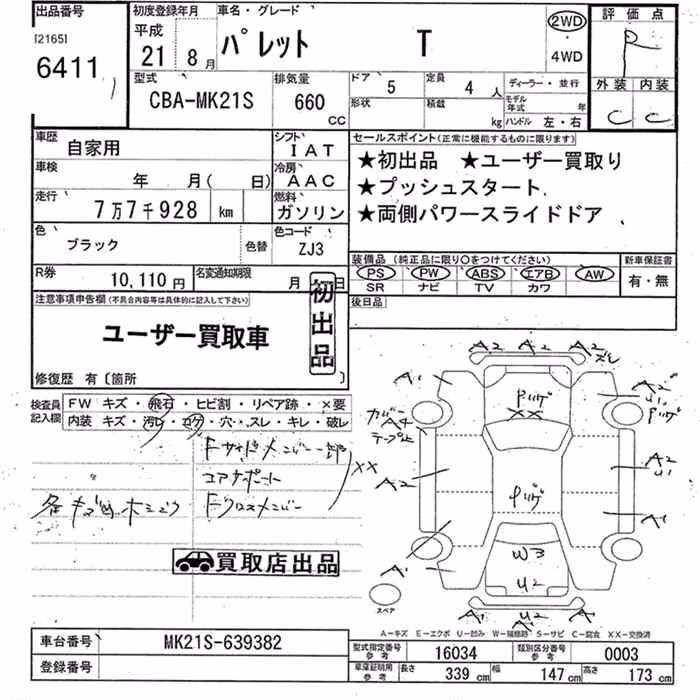 出品番号 初度登録年月 車名・グレード 評価点
[2165] 平成
6411 21 8月 パレット T 2WD R
4WD
型式 排気量 ドア 5 定員 4人 ディーラー・並行 外装 内装
CBA-MK21S 660 CC 形状 積載 kg モデル年式 年 C C
ハンドル 左・右
車歴 自家用 シフト IAT セールスポイント(正常に機能するものに限ります)
車検 年 月( 日) 冷房 AAC ★初出品 ★ユーザー買取り
走行 7万7千928 km 燃料 ガソリン ★プッシュスタート
★両側パワースライドドア
色 ブラック 色替 色コード ZJ3
装備品(純正品に限り○をつけてください) 新車保証書
R券 10,110円 名変通知期限 月 日 PS PW ABS エアB AW 有・無
SR ナビ TV カワ
注意事項申告欄(不具合内容等は具体的に記入して下さい) 初出品 後日品
ユーザー買取車
修復歴 有〔箇所
検査員記入欄 FW キズ・飛石・ヒビ割・リペア跡・×要
内装 キズ・汚レ・コゲ・穴・スレ・キレ・破レ
Fサイドメンバー一部
コアサポート XX
Fクロスメンバー
買取店出品
A2 A2 A2
A1 Pリザ A2
XX U1
カバー A4 Pリザ
テープ止
A2 A2
U1
Pリザ
A1
A1 W3
U2
A1 U2 A1
スペア
A－キズ E－エクボ U－凹み W－補修跡 S－サビ C－腐食 XX－交換済
車台番号 MK21S-639382 型式指定番号 参考 16034 類別区分番号 参考 0003
登録番号 車庫証明用 参考 長さ 339 cm 幅 147 cm 高さ 173 cm